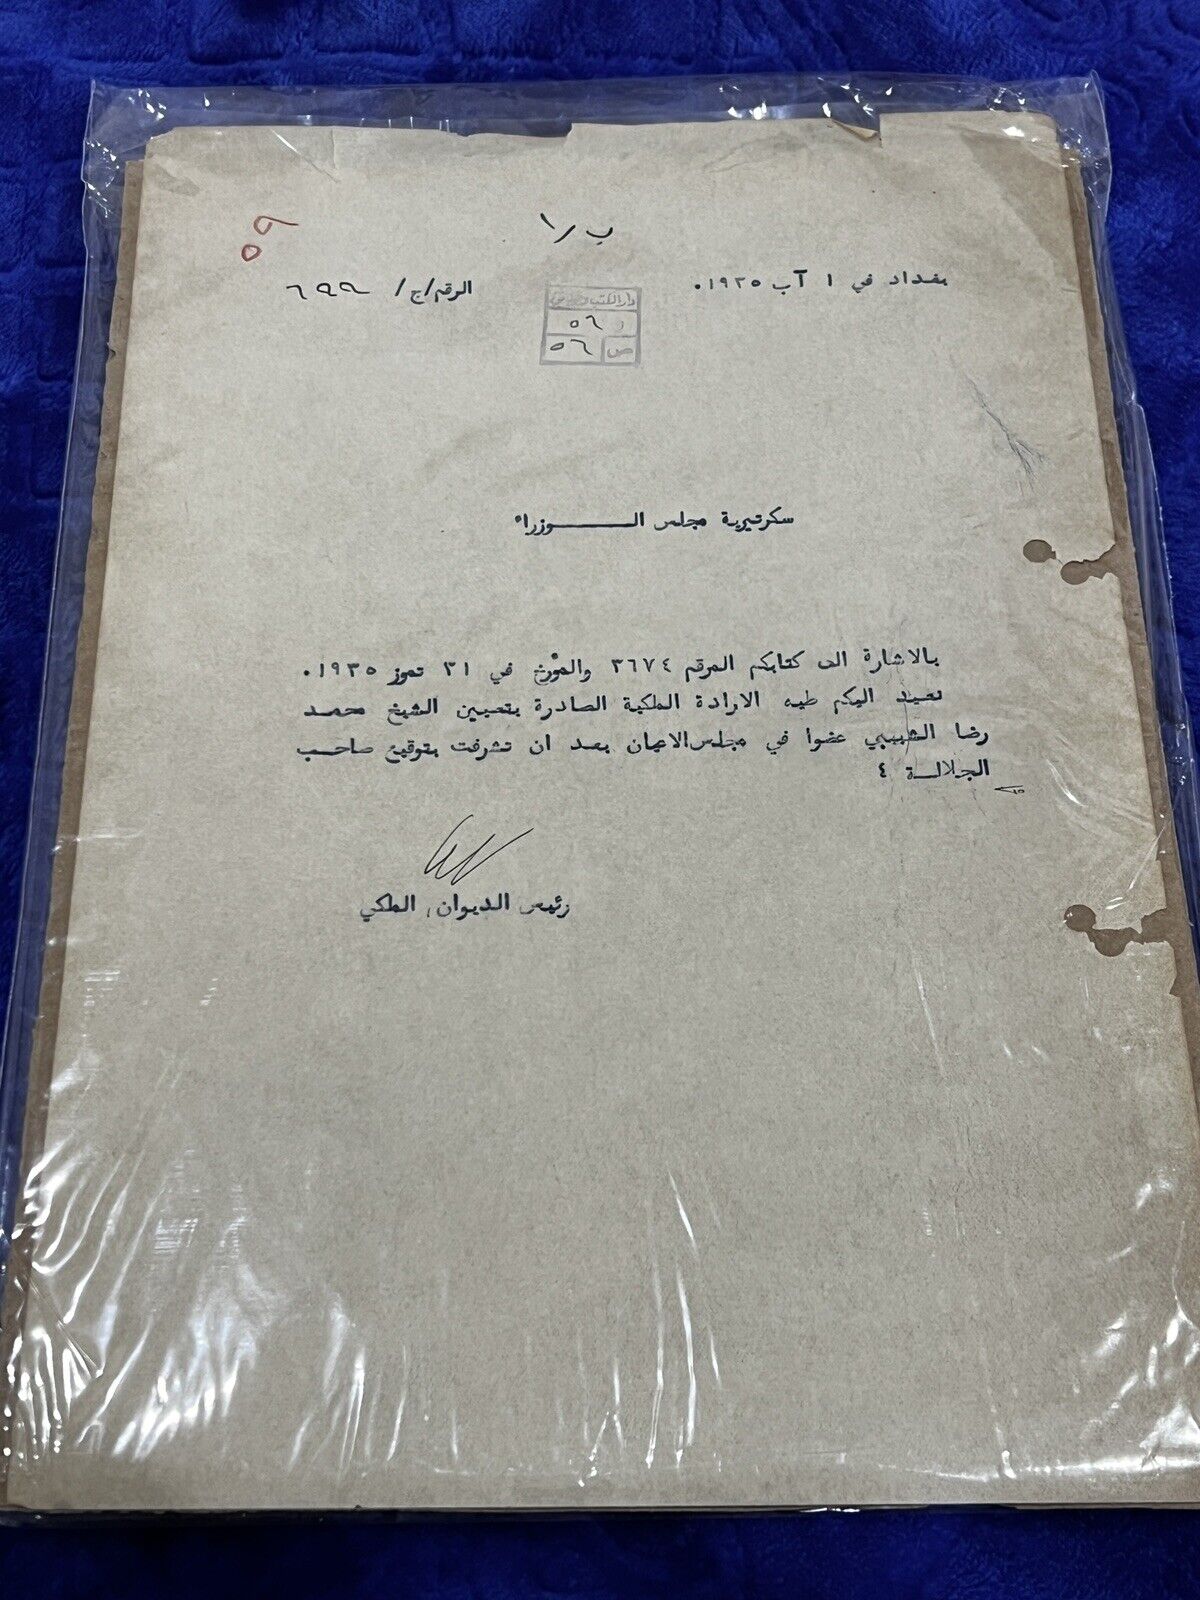 ب/١
بغداد في ١ آب ١٩٣٥.
الرقم/ج/ ٦٩٩
دار الكتب
٥٦
ص ٥٦
سكرتيرية مجلس الـــوزراء
بالاشارة الى كتابكم المرقم ٣٦٧٤ والمؤرخ في ٣١ تموز ١٩٣٥.
نعيد اليكم طيه الارادة الملكية الصادرة بتعيين الشيخ محمد
رضا الشبيبي عضوا في مجلس الاعيان بعد ان تشرفت بتوقيع صاحب
الجلالة ٤
رئيس الديوان الملكي